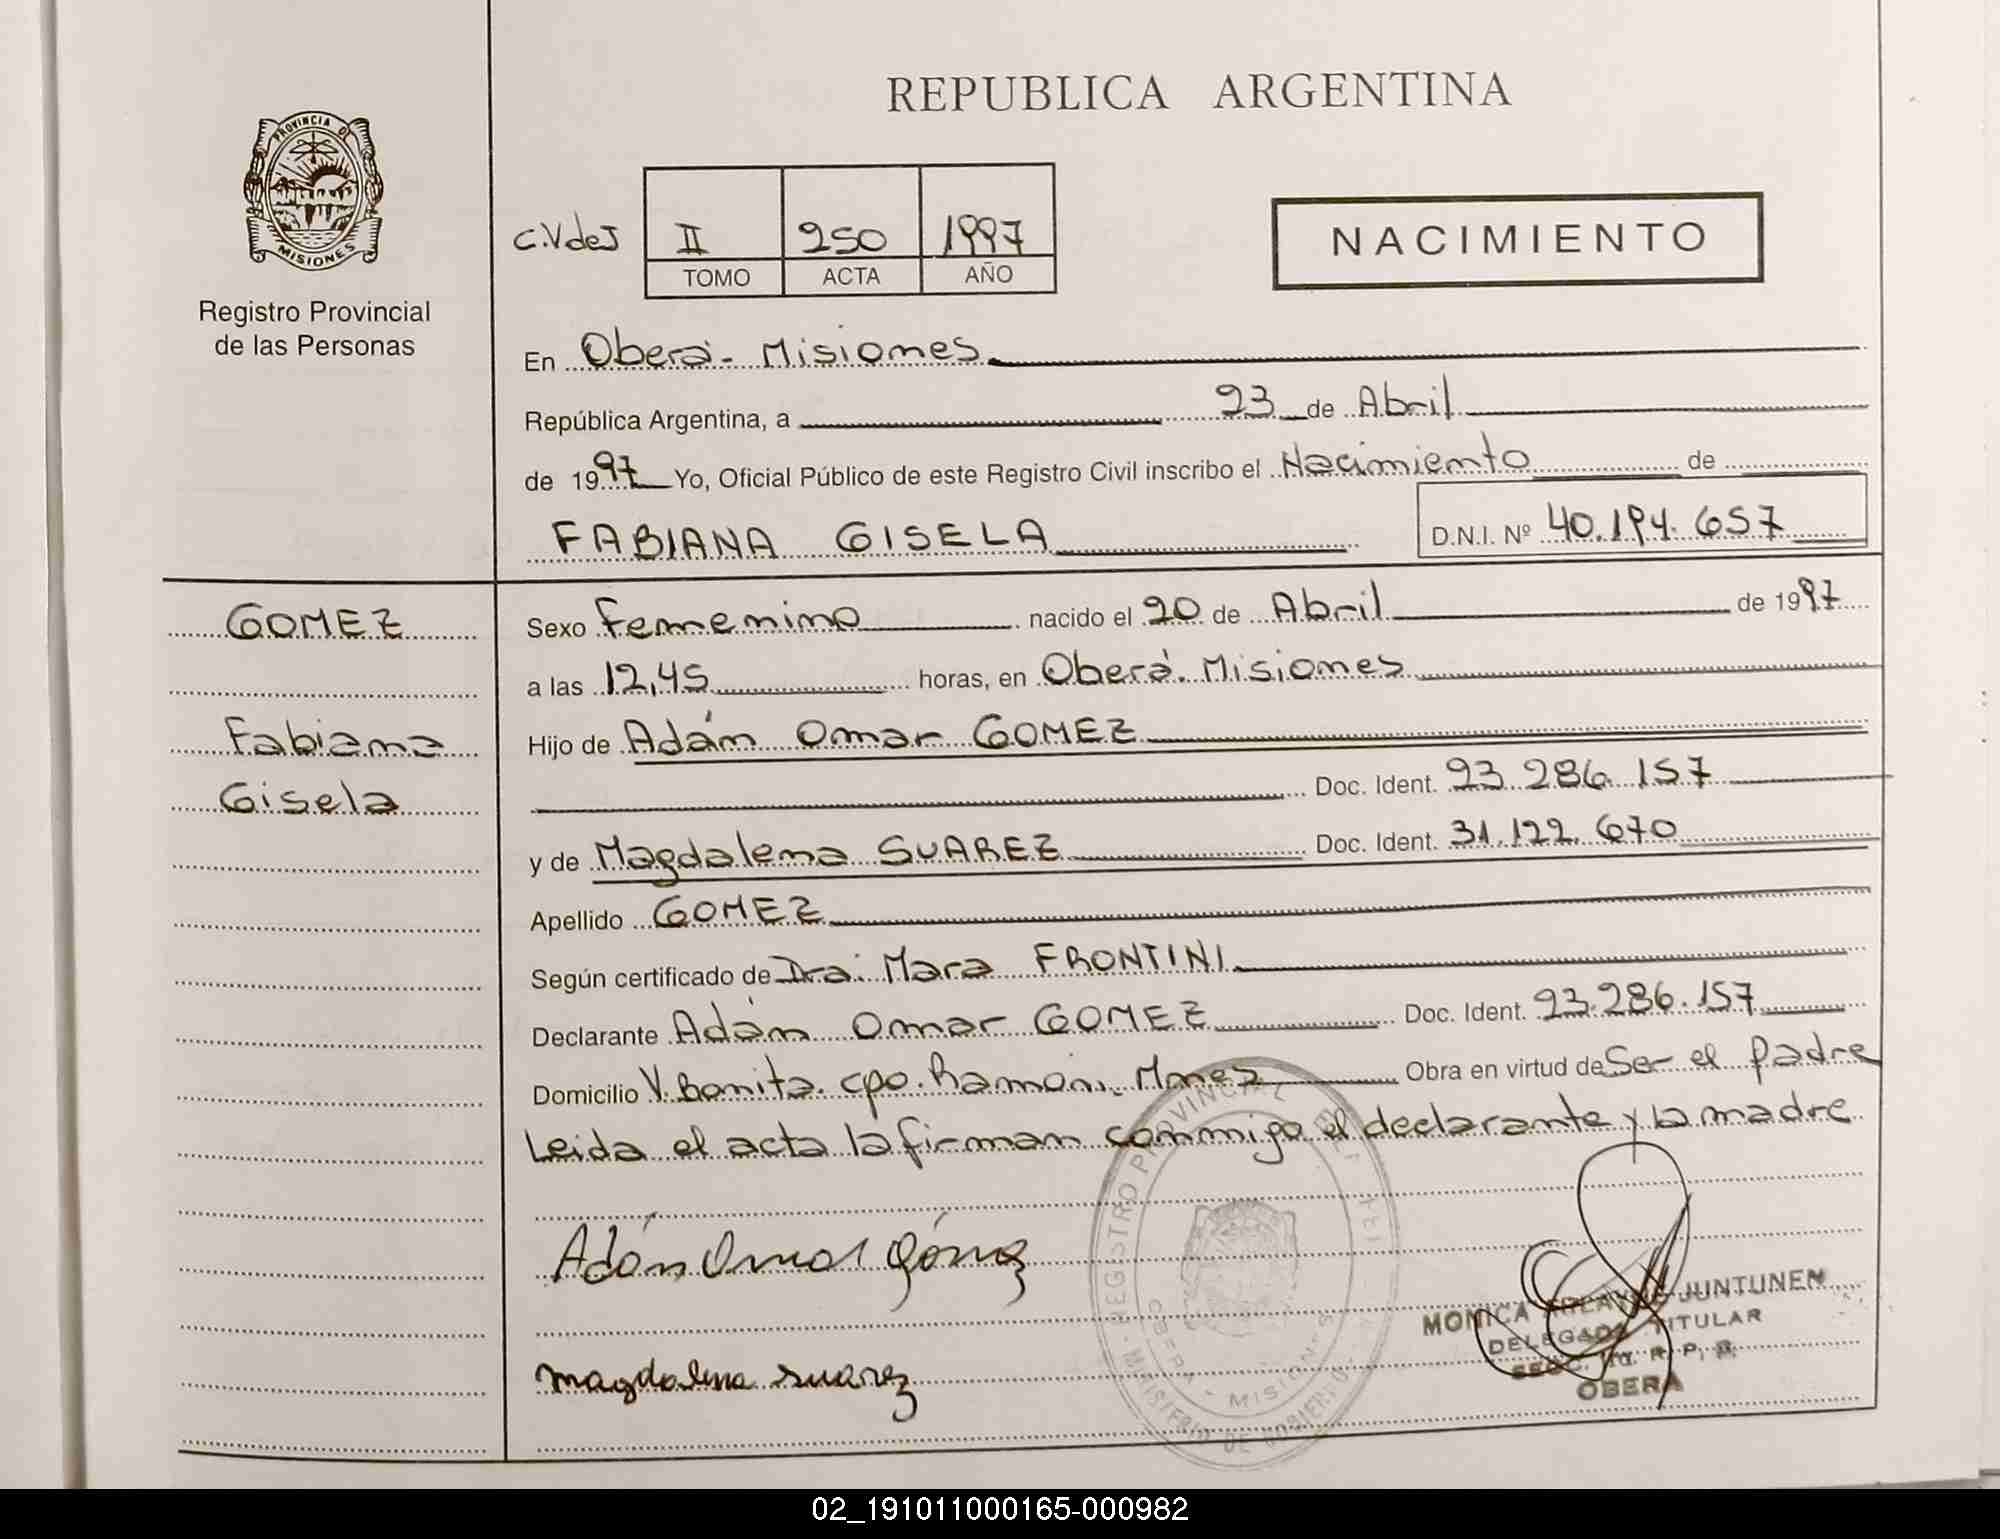 REPUBLICA ARGENTINA
PROVINCIA DE
MISIONES
Registro Provincial
de las Personas
C.VdeJ II 250 1997
TOMO ACTA AÑO
NACIMIENTO
En Oberá - Misiones
República Argentina, a 23 de Abril
de 1997 Yo, Oficial Público de este Registro Civil inscribo el Nacimiento de
FABIANA GISELA D.N.I. Nº 40.194.657
GOMEZ
Fabiana
Gisela
Sexo Femenino nacido el 20 de Abril de 1997
a las 12,45 horas, en Oberá. Misiones
Hijo de Adán Omar GOMEZ
Doc. Ident. 93.286.157
y de Magdalena SUAREZ Doc. Ident. 31.122.670
Apellido GOMEZ
Según certificado de Dra. Mara FRONTINI
Declarante Adán Omar GOMEZ Doc. Ident. 93.286.157
Domicilio V. Bonita. cpo. Ramón. Mnes Obra en virtud de Ser el Padre
Leida el acta la firman conmigo el declarante y la madre
Adán Omar Gómez
magdalena suarez
REGISTRO PROVINCIAL DE
MINISTERIO DE GOBIERNO
OBERA - MISIONES
MONICA JUNTUNEN
DELEGADA TITULAR
R. P. P.
OBERA
02_191011000165-000982